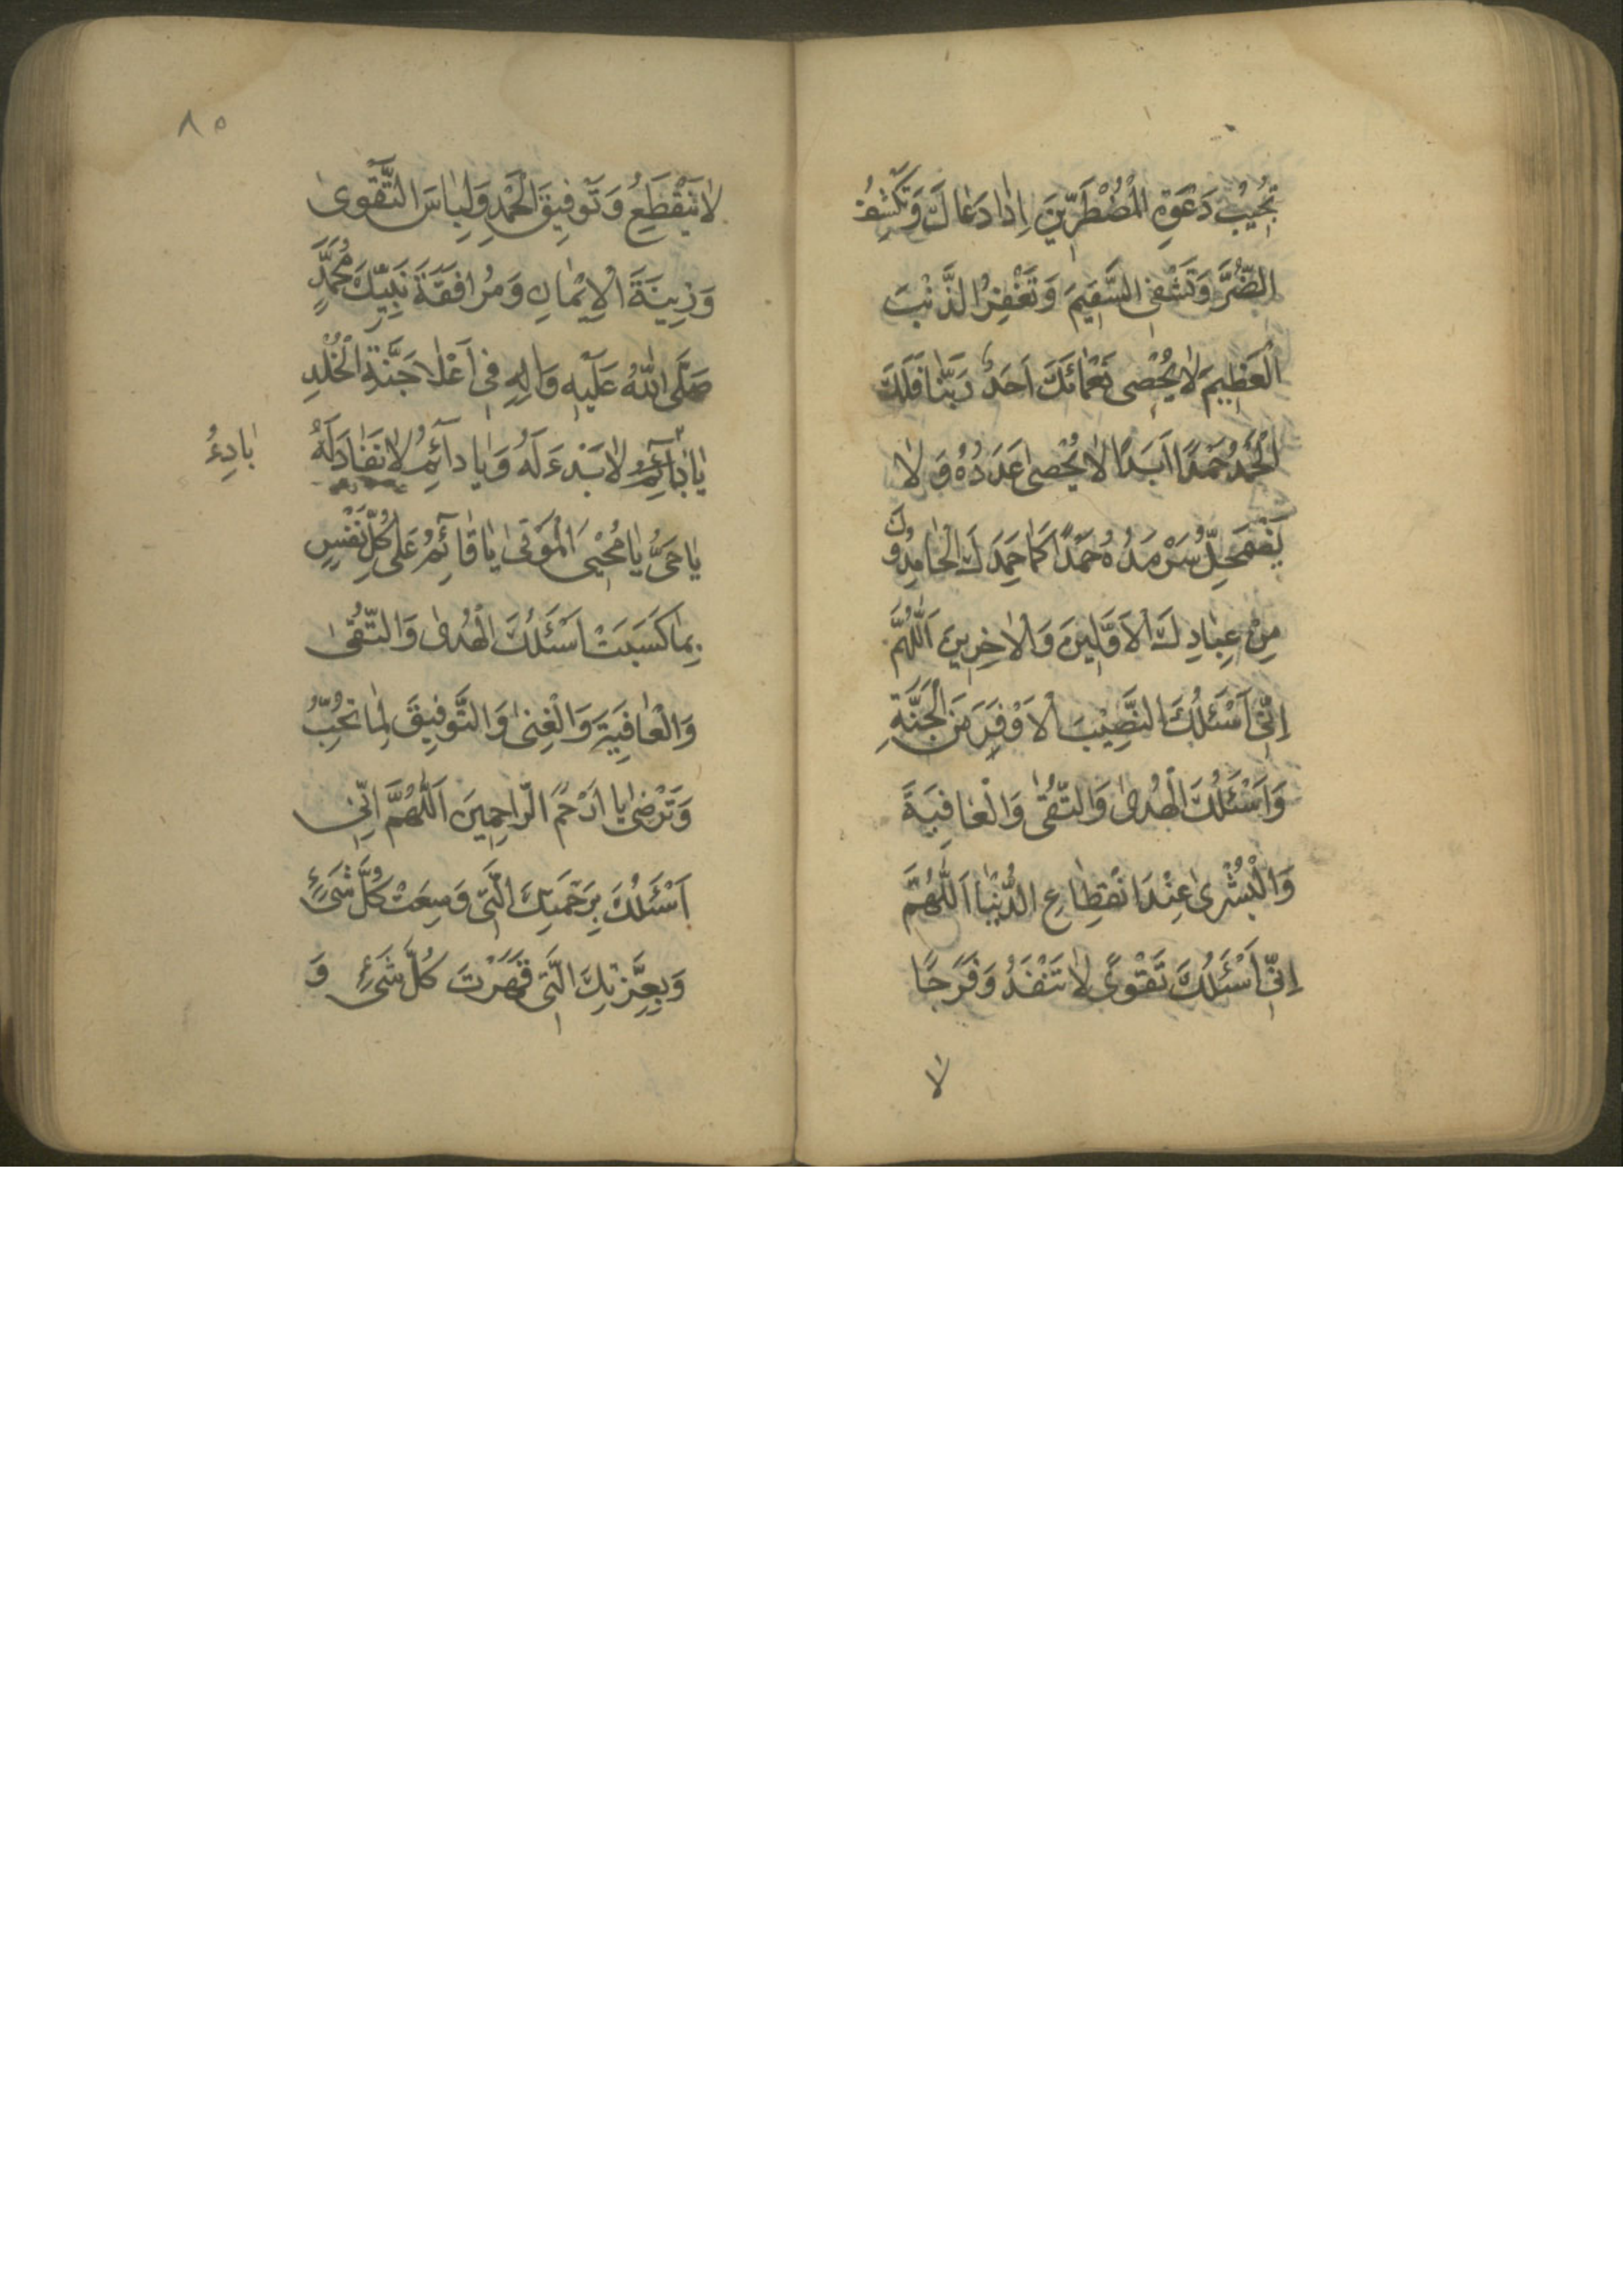 تُجِيبُ دَعْوَةَ الْمُضْطَرِّينَ اِذَا دَعَاكَ وَتَكْشِفُ
الضُّرَّ وَتَشْفِى السَّقِيمَ وَتَغْفِرُ الذَّنْبَ
الْعَظِيمَ لَا يُحْصِى نَعْمَائَكَ اَحَدٌ رَبَّنَا فَلَكَ
الْحَمْدُ حَمْدًا اَبَدًا لَا يُحْصىٰ عَدَدُهُ وَلَا
يَضْمَحِلُّ سَرْمَدُهُ حَمْدًا كَمَا حَمِدَكَ الْحَامِدُونَ
مِنْ عِبَادِكَ الْاَوَّلِينَ وَالْاٰخِرِينَ اَللّٰهُمَّ
اِنِّى اَسْئَلُكَ النَّصِيبَ الْاَوْفَرَ مِنَ الْجَنَّةِ
وَاَسْئَلُكَ الْهُدىٰ وَالتُّقىٰ وَالْعَافِيَةَ
وَالْبُشْرىٰ عِنْدَ انْقِطَاعِ الدُّنْيَا اَللّٰهُمَّ
اِنِّى اَسْئَلُكَ تَقْوىً لَا تَنْفَدُ وَفَرَجًا
لا
٨٥
لَا يَنْقَطِعُ وَتَوْفِيقَ الْحَمْدِ وَلِبَاسَ التَّقْوىٰ
وَزِينَةَ الْاِيْمَانِ وَمُرَافَقَةَ نَبِيِّكَ مُحَمَّدٍ
صَلَّى اللّٰهُ عَلَيْهِ وَاٰلِهِ فِى اَعْلَا جَنَّةِ الْخُلْدِ
يَا لَا بَدْءَ لَهُ وَيَا دَآئِمُ لَا نَفَادَ لَهُ
بَادِئُ
يَا حَىُّ يَا مُحْيِىَ الْمَوْتىٰ يَا قَآئِمُ عَلىٰ كُلِّ نَفْسٍ
بِمَا كَسَبَتْ اَسْئَلُكَ الْهُدىٰ وَالتُّقىٰ
وَالْعَافِيَةَ وَالْغِنىٰ وَالتَّوْفِيقَ لِمَا تُحِبُّ
وَتَرْضىٰ يَا اَرْحَمَ الرَّاحِمِينَ اَللّٰهُمَّ اِنِّى
اَسْئَلُكَ بِرَحْمَتِكَ الَّتِى وَسِعَتْ كُلَّ شَىْءٍ
وَبِعِزَّتِكَ الَّتِى قَهَرْتَ كُلَّ شَىْءٍ وَ